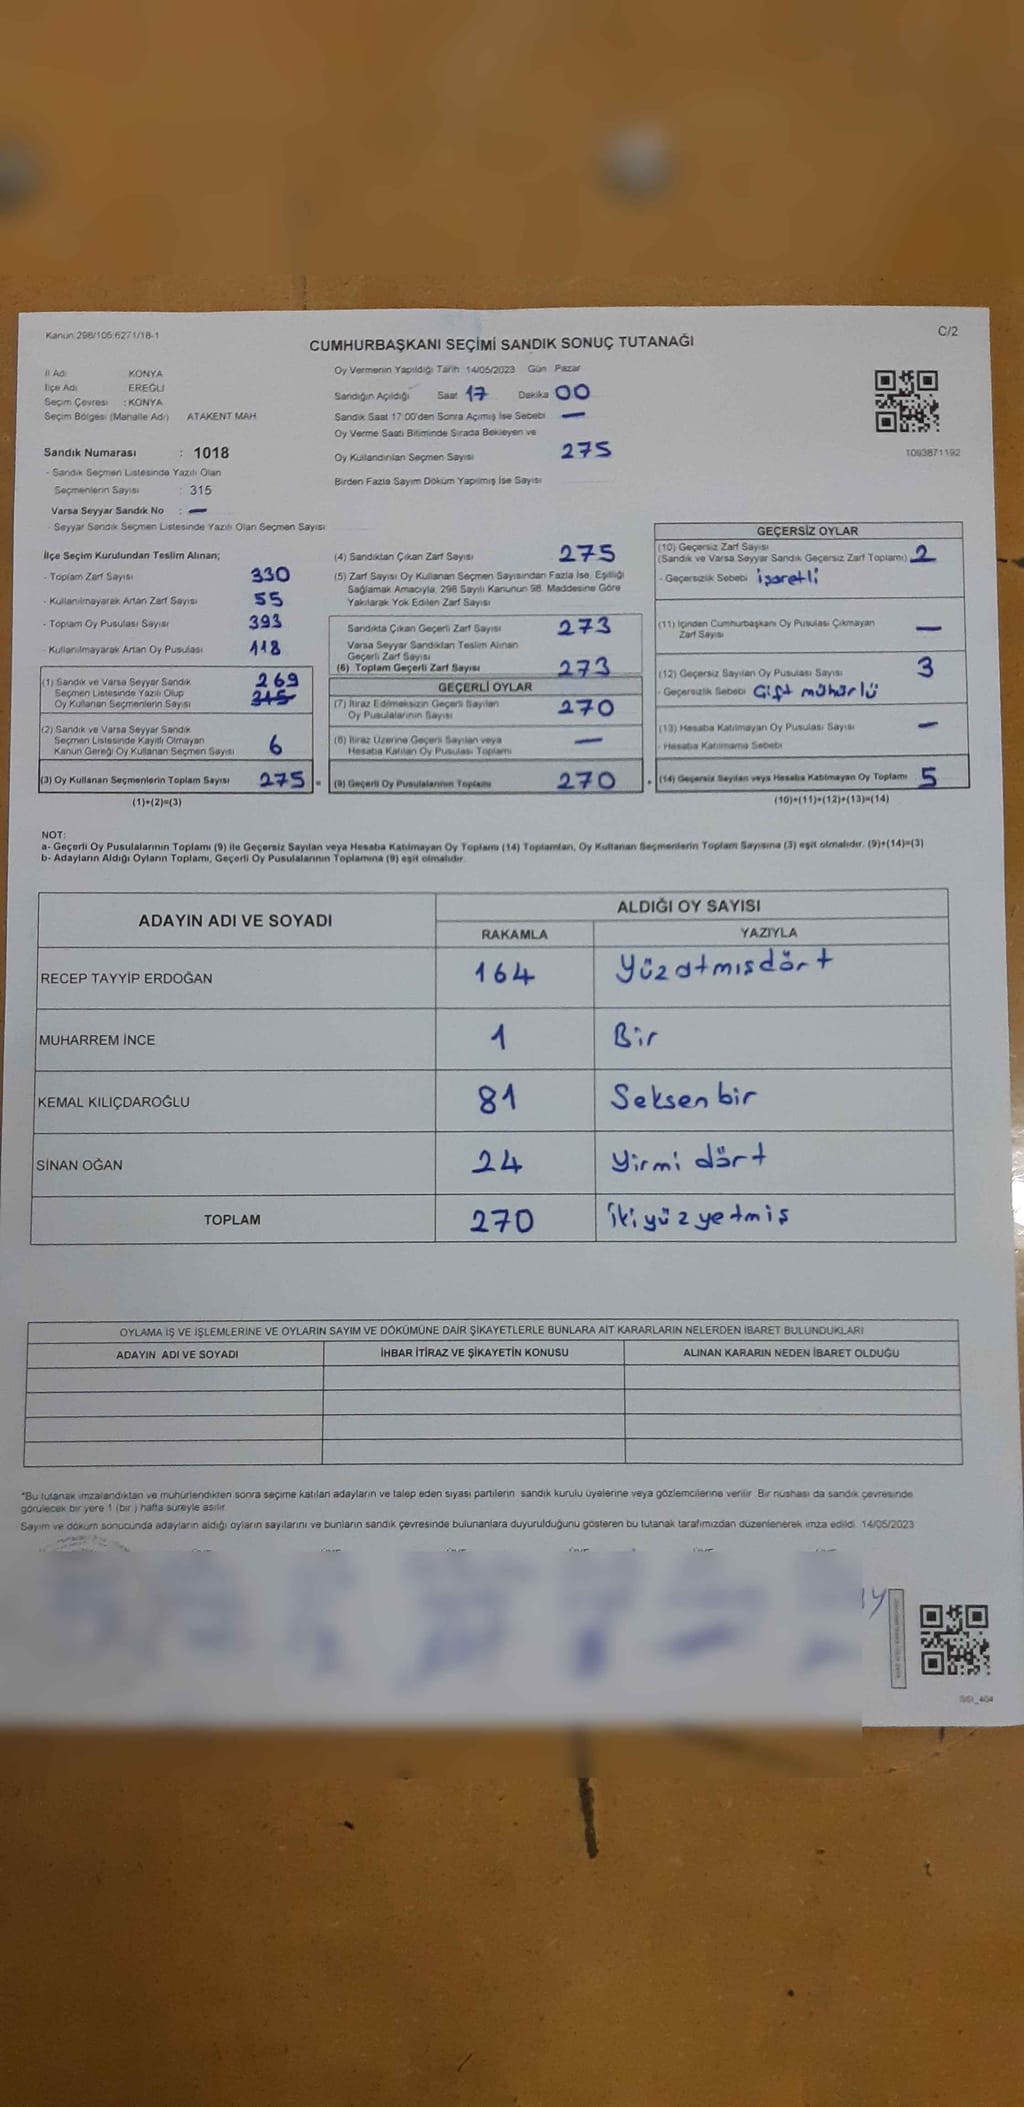 Kanun:298/105:6271/18-1
C/2
CUMHURBAŞKANI SEÇİMİ SANDIK SONUÇ TUTANAĞI
İl Adı KONYA
İlçe Adı EREĞLİ
Seçim Çevresi : KONYA
Seçim Bölgesi (Mahalle Adı) ATAKENT MAH
Oy Vermenin Yapıldığı Tarih 14/05/2023 Gün Pazar
Sandığın Açıldığı Saat 17 Dakika 00
Sandık Saat 17:00'den Sonra Açımış İse Sebebi —
Oy Verme Saati Bitiminde Sırada Bekleyen ve
Oy Kullandırılan Seçmen Sayısı 275
Birden Fazla Sayım Döküm Yapılmış İse Sayısı
1093871192
Sandık Numarası : 1018
- Sandık Seçmen Listesinde Yazılı Olan
Seçmenlerin Sayısı : 315
Varsa Seyyar Sandık No : —
- Seyyar Sandık Seçmen Listesinde Yazılı Olan Seçmen Sayısı
İlçe Seçim Kurulundan Teslim Alınan;
- Toplam Zarf Sayısı 330
- Kullanılmayarak Artan Zarf Sayısı 55
- Toplam Oy Pusulası Sayısı 393
- Kullanılmayarak Artan Oy Pusulası 118
(1) Sandık ve Varsa Seyyar Sandık 269
Seçmen Listesinde Yazılı Olup 315
Oy Kullanan Seçmenlerin Sayısı
(2) Sandık ve Varsa Seyyar Sandık
Seçmen Listesinde Kayıtlı Olmayan
Kanun Gereği Oy Kullanan Seçmen Sayısı 6
(3) Oy Kullanan Seçmenlerin Toplam Sayısı 275 =
(1)+(2)=(3)
(4) Sandıktan Çıkan Zarf Sayısı 275
(5) Zarf Sayısı Oy Kullanan Seçmen Sayısından Fazla İse, Eşitliği
Sağlamak Amacıyla, 298 Sayılı Kanunun 98. Maddesine Göre
Yakılarak Yok Edilen Zarf Sayısı
Sandıkta Çıkan Geçerli Zarf Sayısı 273
Varsa Seyyar Sandıktan Teslim Alınan
Geçerli Zarf Sayısı
(6) Toplam Geçerli Zarf Sayısı 273
GEÇERLİ OYLAR
(7) İtiraz Edilmeksizin Geçerli Sayılan
Oy Pusulalarının Sayısı 270
(8) İtiraz Üzerine Geçerli Sayılan veya
Hesaba Katılan Oy Pusulası Toplamı —
(9) Geçerli Oy Pusulalarının Toplamı 270 +
GEÇERSİZ OYLAR
(10) Geçersiz Zarf Sayısı
(Sandık ve Varsa Seyyar Sandık Geçersiz Zarf Toplamı) 2
- Geçersizlik Sebebi işaretli
(11) İçinden Cumhurbaşkanı Oy Pusulası Çıkmayan
Zarf Sayısı —
(12) Geçersiz Sayılan Oy Pusulası Sayısı 3
- Geçersizlik Sebebi Çift mühürlü
(13) Hesaba Katılmayan Oy Pusulası Sayısı —
- Hesaba Katılmama Sebebi
(14) Geçersiz Sayılan veya Hesaba Katılmayan Oy Toplamı 5
(10)+(11)+(12)+(13)=(14)
NOT:
a- Geçerli Oy Pusulalarının Toplamı (9) ile Geçersiz Sayılan veya Hesaba Katılmayan Oy Toplamı (14) Toplamları, Oy Kullanan Seçmenlerin Toplam Sayısına (3) eşit olmalıdır. (9)+(14)=(3)
b- Adayların Aldığı Oyların Toplamı, Geçerli Oy Pusulalarının Toplamına (9) eşit olmalıdır.
ADAYIN ADI VE SOYADI
ALDIĞI OY SAYISI
RAKAMLA YAZIYLA
RECEP TAYYİP ERDOĞAN 164 Yüzatmışdört
MUHARREM İNCE 1 Bir
KEMAL KILIÇDAROĞLU 81 Seksenbir
SİNAN OĞAN 24 Yirmi dört
TOPLAM 270 İkiyüzyetmiş
OYLAMA İŞ VE İŞLEMLERİNE VE OYLARIN SAYIM VE DÖKÜMÜNE DAİR ŞİKAYETLERLE BUNLARA AİT KARARLARIN NELERDEN İBARET BULUNDUKLARI
ADAYIN ADI VE SOYADI İHBAR İTİRAZ VE ŞİKAYETİN KONUSU ALINAN KARARIN NEDEN İBARET OLDUĞU
*Bu tutanak imzalandıktan ve mühürlendikten sonra seçime katılan adayların ve talep eden siyasi partilerin sandık kurulu üyelerine veya gözlemcilerine verilir. Bir nüshası da sandık çevresinde
görülecek bir yere 1 (bir ) hafta süreyle asılır.
Sayım ve döküm sonucunda adayların aldığı oyların sayılarını ve bunların sandık çevresinde bulunanlara duyurulduğunu gösteren bu tutanak tarafımızdan düzenlenerek imza edildi. 14/05/2023